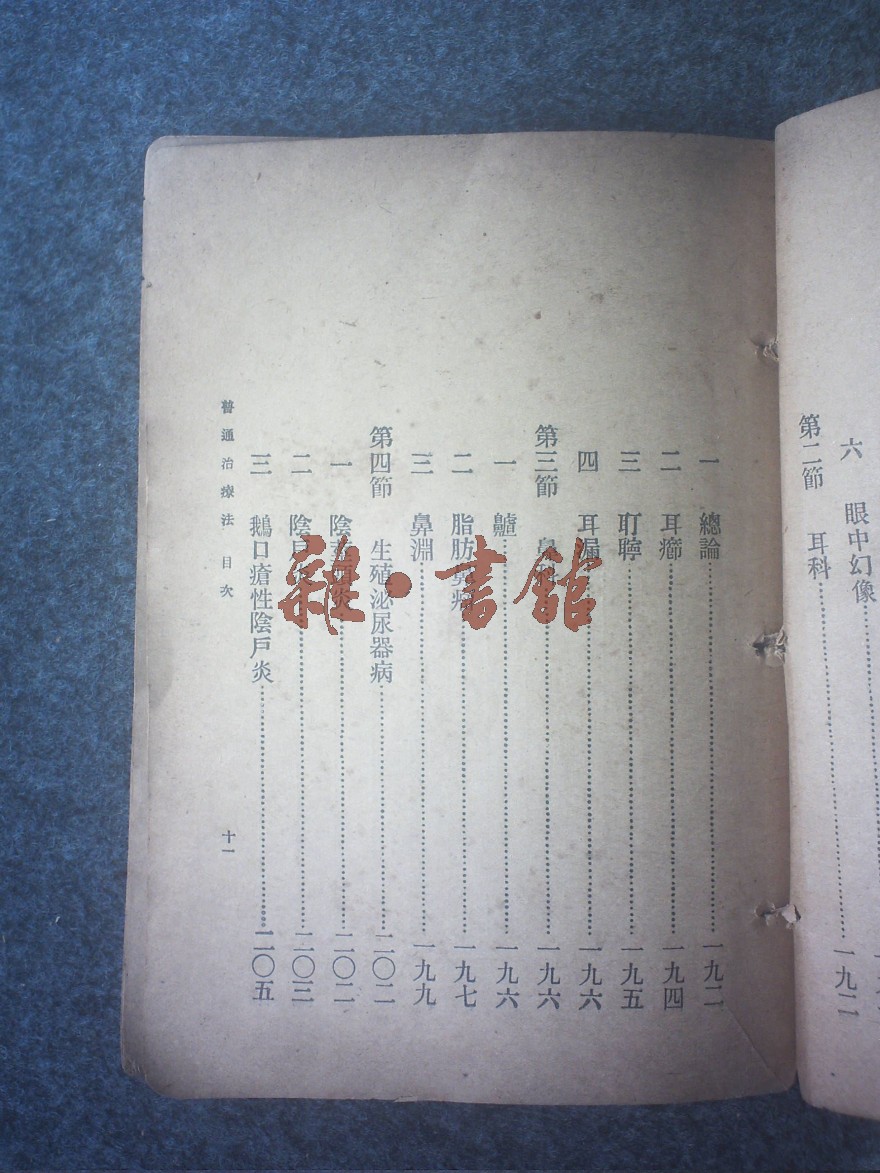 六 眼中幻像
第二節 耳科……一九二
一 總論……一九二
二 耳癤……一九四
三 耵聹……一九五
四 耳漏……一九六
第三節 鼻科……一九六
一 齇……一九六
二 脂肪……一九七
三 鼻淵……一九九
第四節 生殖泌尿器病……二〇二
一 陰……炎……二〇二
二 陰戶……二〇三
三 鵝口瘡性陰戶炎……二〇五
普通治療法 目次
十一
雜·書館